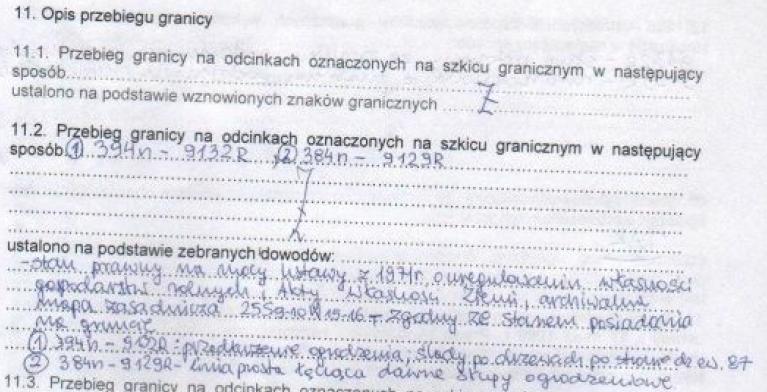 11. Opis przebiegu granicy
11.1. Przebieg granicy na odcinkach oznaczonych na szkicu granicznym w następujący
sposób
ustalono na podstawie wznowionych znaków granicznych
11.2. Przebieg granicy na odcinkach oznaczonych na szkicu granicznym w następujący
sposób ① 394n - 9132R ② 384n - 9129R
ustalono na podstawie zebranych dowodów:
- stan prawny na mocy Ustawy z 1971r. o uregulowaniu własności
gospodarstw rolnych, Akty Własności Ziemi, archiwalna
mapa zasadnicza - zgodny ze stanem posiadania
na gruncie
① 394n - 9132R - przedłużenie ogrodzenia; ślady po drzewach po stronie dz ew. 87
② 384n - 9129R - linia prosta łącząca dawne słupy ogrodzeniowe
11.3. Przebieg granicy na odcinkach